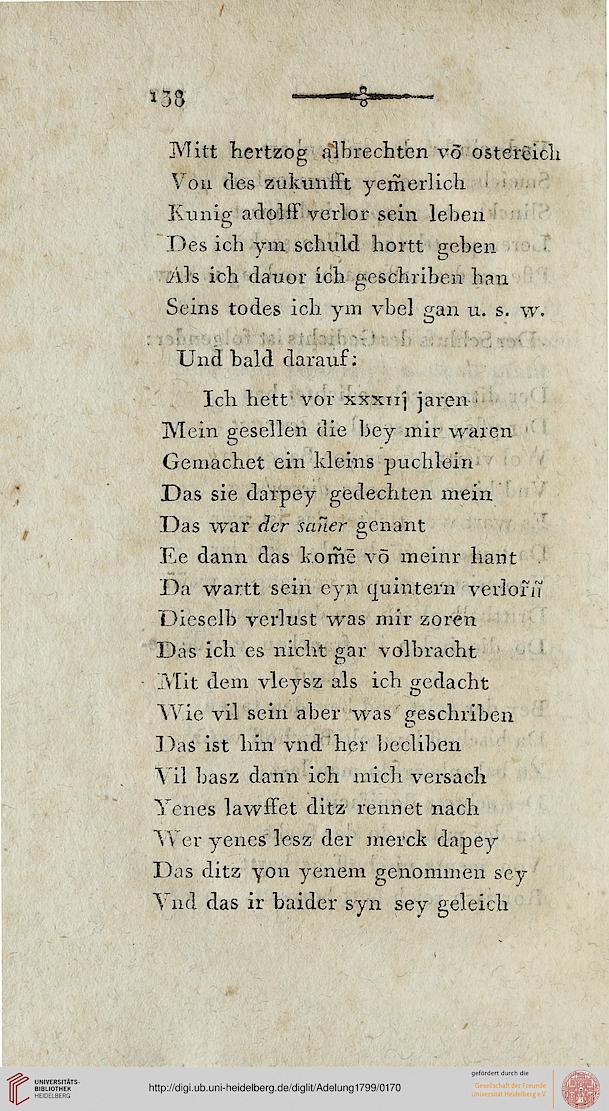 138
Mitt hertzog albrechten vō ostereich
Von des zukunfft yem̃erlich
Kunig adolff verlor sein leben
Des ich ym schuld hortt geben
Als ich dauor ich geschriben han
Seins todes ich ym vbel gan u. s. w.
Und bald darauf:
Ich hett vor xxxiij jaren
Mein gesellen die bey mir waren
Gemachet ein kleins puchlein
Das sie darpey gedechten mein
Das war der sañer genant
Ee dann das kom̃ē vō meinr hant
Da wartt sein eyn quintern verlorñ
Dieselb verlust was mir zoren
Das ich es nicht gar volbracht
Mit dem vleysz als ich gedacht
Wie vil sein aber was geschriben
Das ist hin vnd her becliben
Vil basz dann ich mich versach
Yenes lawffet ditz rennet nach
Wer yenes lesz der merck dapey
Das ditz von yenem genommen sey
Vnd das ir baider syn sey geleich
UNIVERSITÄTS-
BIBLIOTHEK
HEIDELBERG
http://digi.ub.uni-heidelberg.de/diglit/Adelung1799/0170
gefördert durch die
Gesellschaft der Freunde
Universität Heidelberg e.V.